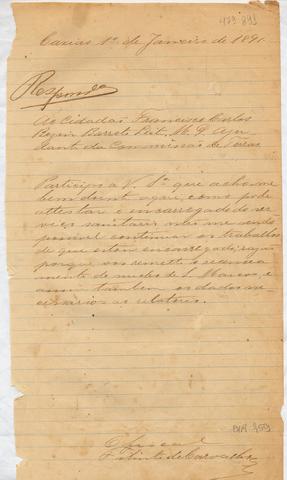 479 893
Caxias 1º de Janeiro de 1891.
Responda
Ao Cidadão Francisco Carlos
Barreto Leit, M. D. Aju
dante da Commissão de Terras
Participo a V. Sª que acho-me
bem doente aqui, como pode
attestar o encarregado do ser
viço sanitario, não me sendo
possivel continuar os trabalhos
de que estou encarregado, razão
porque vos remetto o
mento do nucleo de S. Marcos, e
assim tambem os dados ne
cessarios ao relatorio.
O Fiscal
de Carvalho